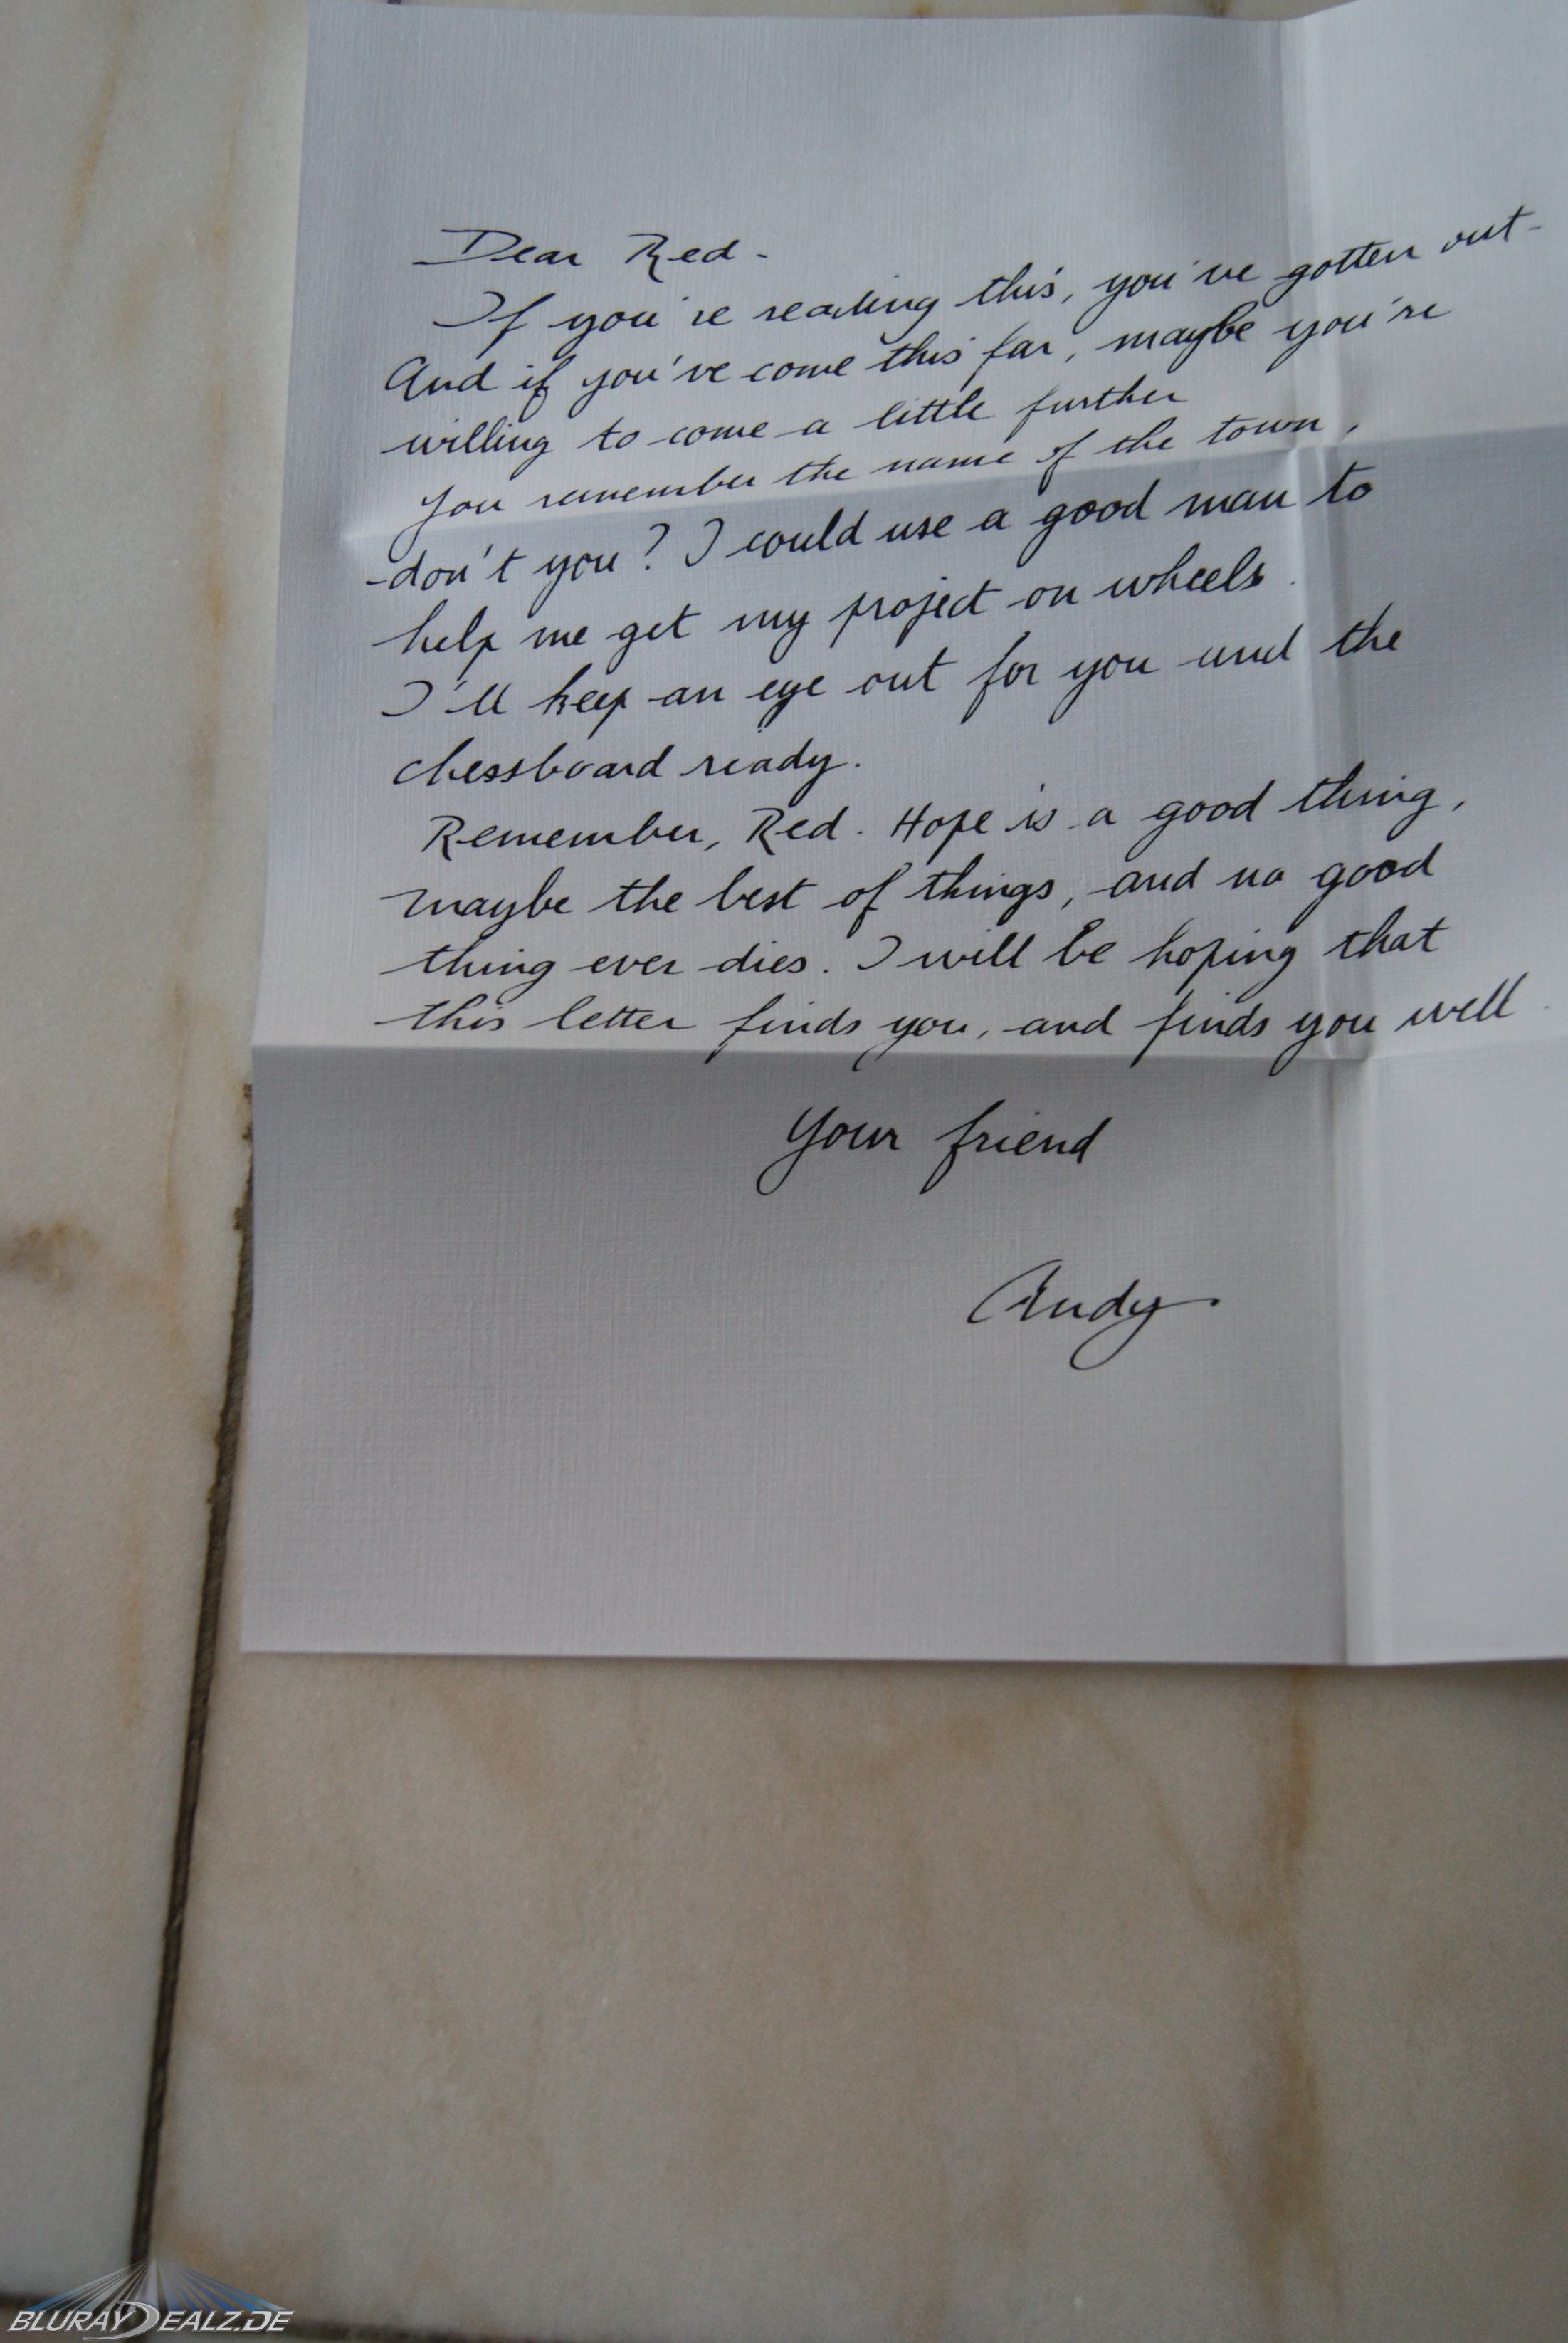 Dear Red-
If you're reading this, you've gotten out-
And if you've come this far, maybe you're
willing to come a little further
You remember the name of the town,
don't you? I could use a good man to
help me get my project on wheels.
I'll keep an eye out for you and the
chessboard ready.
Remember, Red. Hope is a good thing,
maybe the best of things, and no good
thing ever dies. I will be hoping that
this letter finds you, and finds you well.
Your friend
Andy
BLURAYDEALZ.DE